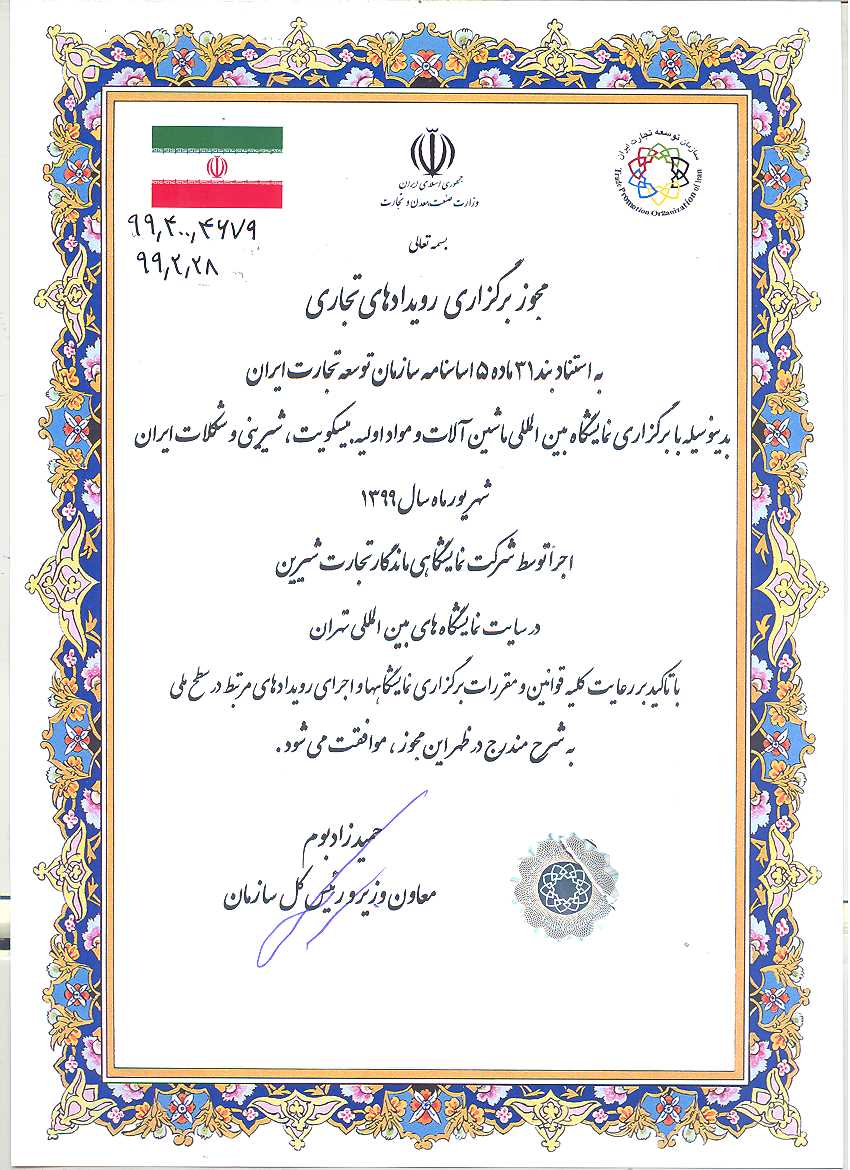 جمهوری اسلامی ایران
وزارت صنعت، معدن و تجارت
سازمان توسعه تجارت ایران
Trade Promotion Organization of Iran
۹۹٫۴۰۰٫۴۶۷۹
۹۹٫۲٫۲۸
بسمه تعالی
مجوز برگزاری رویدادهای تجاری
به استناد بند ۳۱ ماده ۵ اساسنامه سازمان توسعه تجارت ایران
بدینوسیله با برگزاری نمایشگاه بین المللی ماشین آلات و مواد اولیه بیسکویت، شیرینی و شکلات ایران
شهریور ماه سال ۱۳۹۹
اجرا توسط شرکت نمایشگاهی ماندگار تجارت شیرین
در سایت نمایشگاه های بین المللی تهران
با تاکید بر رعایت کلیه قوانین و مقررات برگزاری نمایشگاهها و اجرای رویدادهای مرتبط در سطح ملی
به شرح مندرج در ظهر این مجوز، موافقت می شود.
حمید زادبوم
معاون وزیر و رئیس کل سازمان